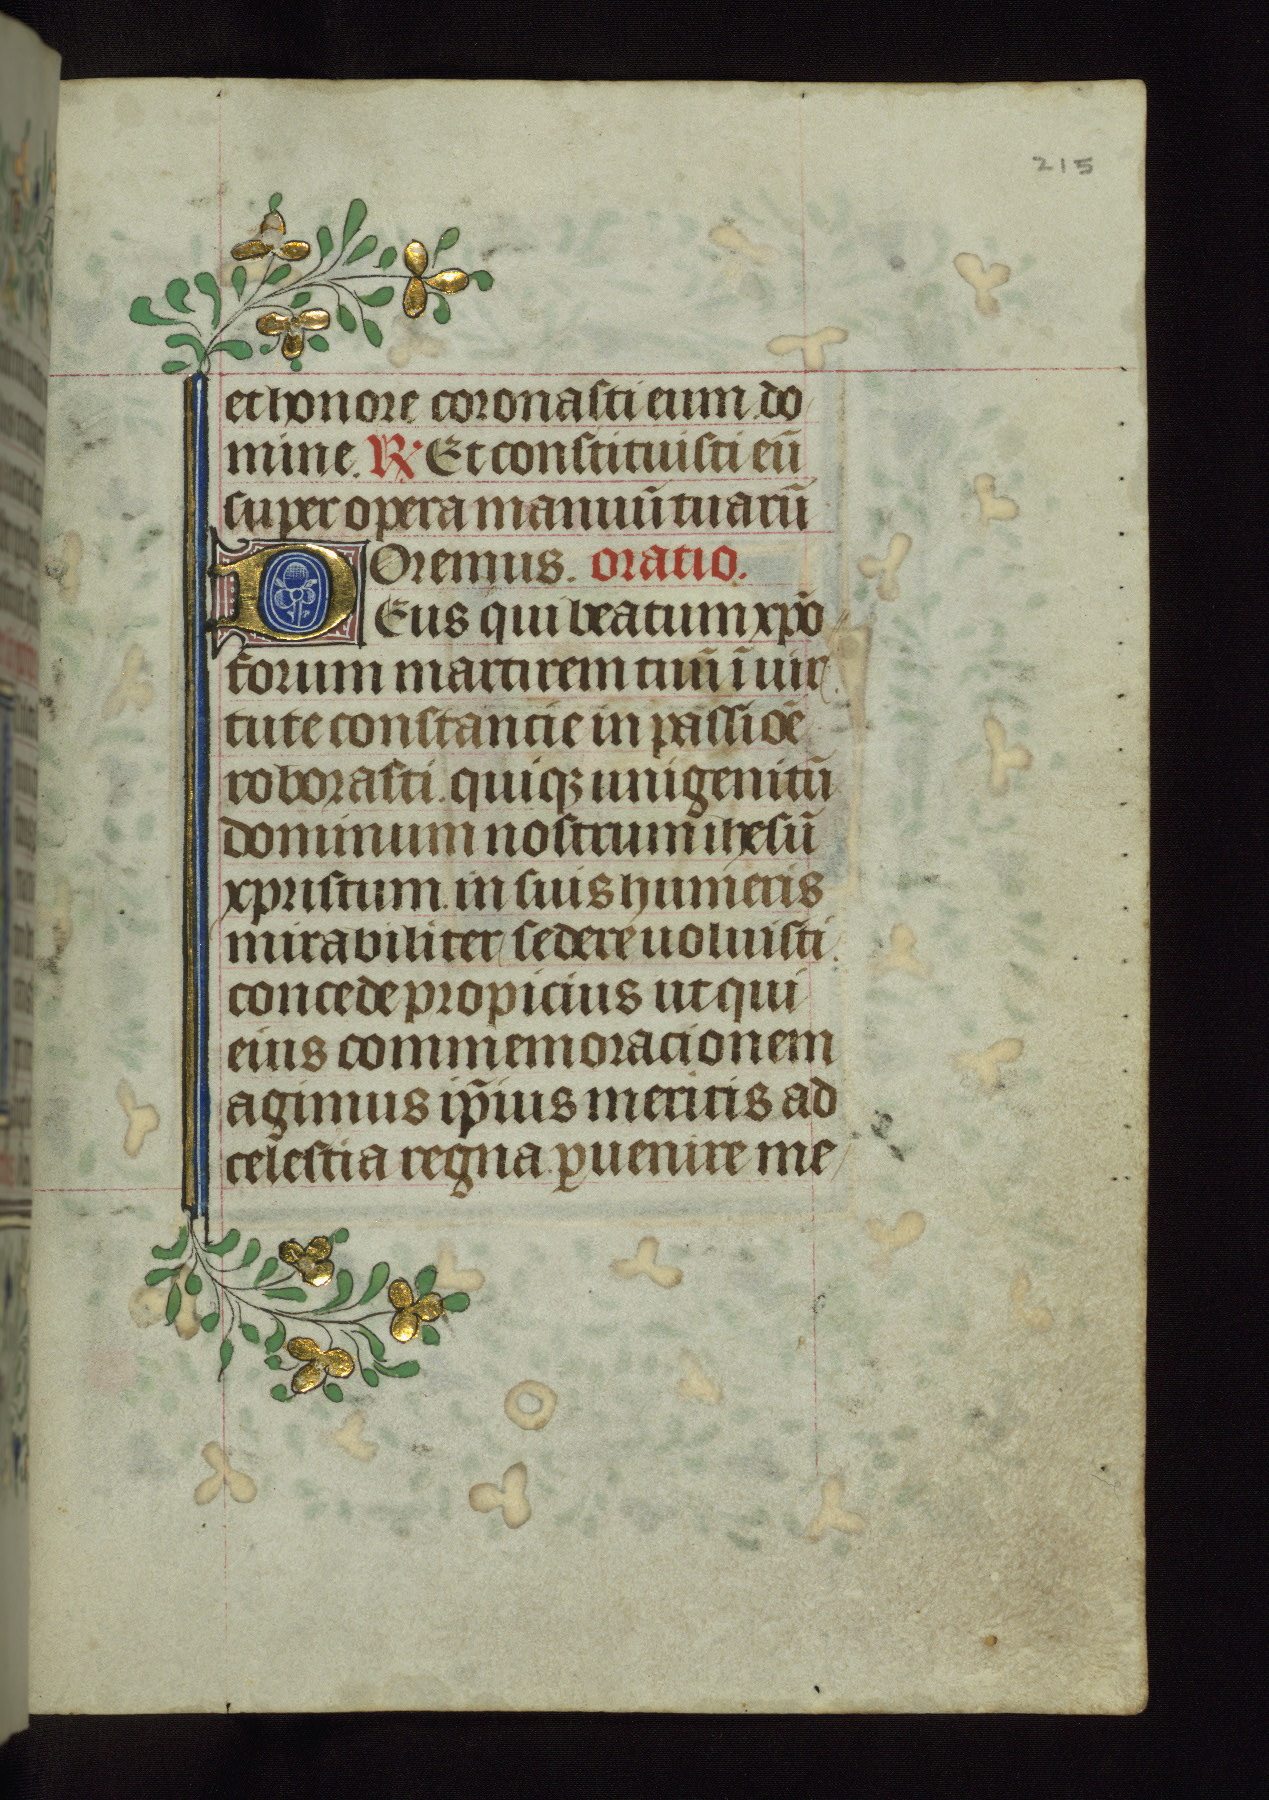 215
et honore coronasti eum do
mine. R⁊ Et constituisti eū
super opera manuū tuarū
Oremus. oratio.
DEus qui beatum xp̄o
forum martirem tuū ī uir
tute constancie in passiōe
roborasti. quiqꝫ unigenitū
dominum nostrum ihesū
xpristum in suis humeris
mirabiliter sedere uoluisti
concede propicius ut qui
eius commemoracionem
agimus ip̄ius meritis ad
celestia regna ꝑuenire me